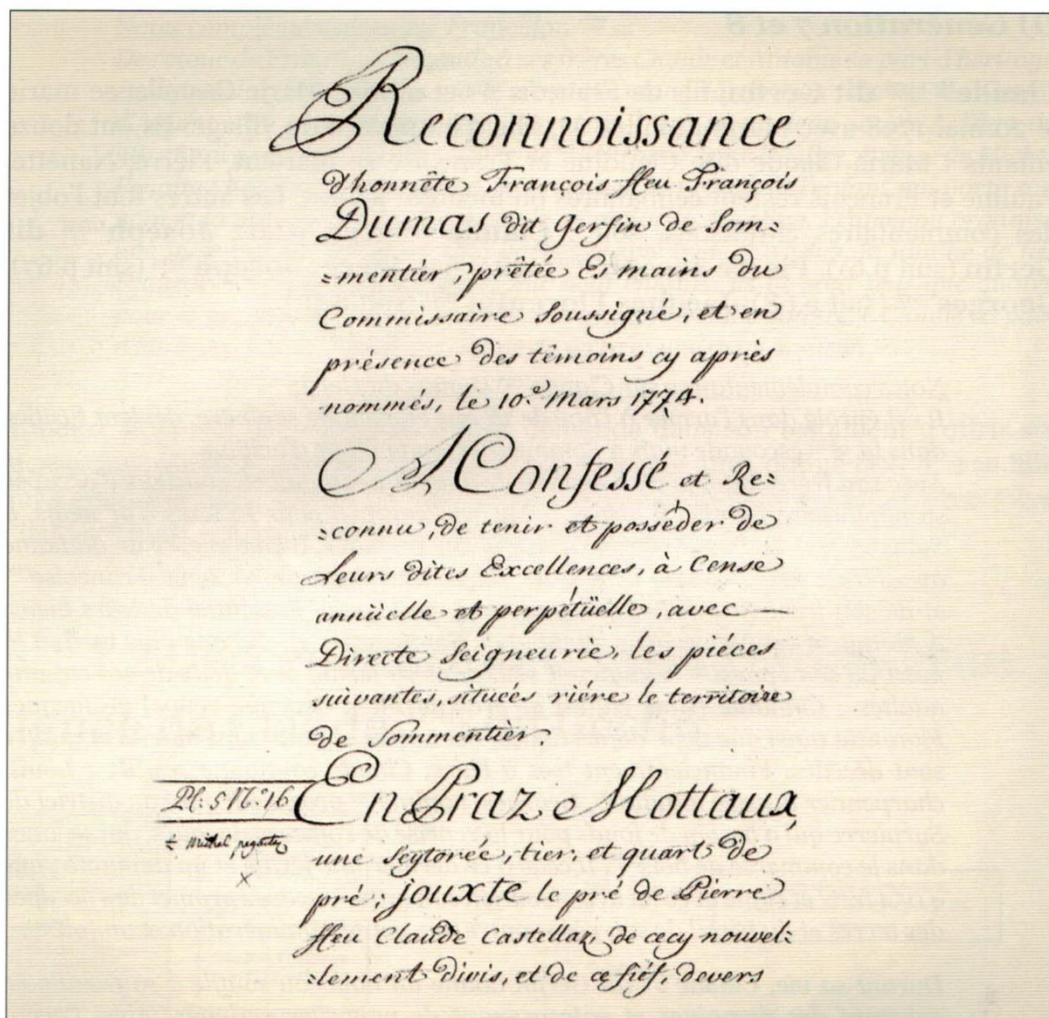 Reconnoissance
d'honnête François ffeu François
Dumas dit Gersin de Som=
=mentier, prêtée Es mains du
Commissaire soussigné, et en
présence des têmoins cy après
nommés, le 10.e Mars 1774.
A Confessé et Re=
=connu, de tenir et posséder de
Leurs dites Excellences, à Cense
annüelle et perpétüelle, avec —
Directe Seigneurie, les piéces
suivantes, situées riére le territoire
de Sommentier.
Pl: 5 N.o 16
En Praz Mottaux,
une Seytorée, tier, et quart de
pré; jouxte le pré de Pierre
ffeu Claude Castellaz, de cecy nouvel=
=lement divis, et de ce fiéf, devers